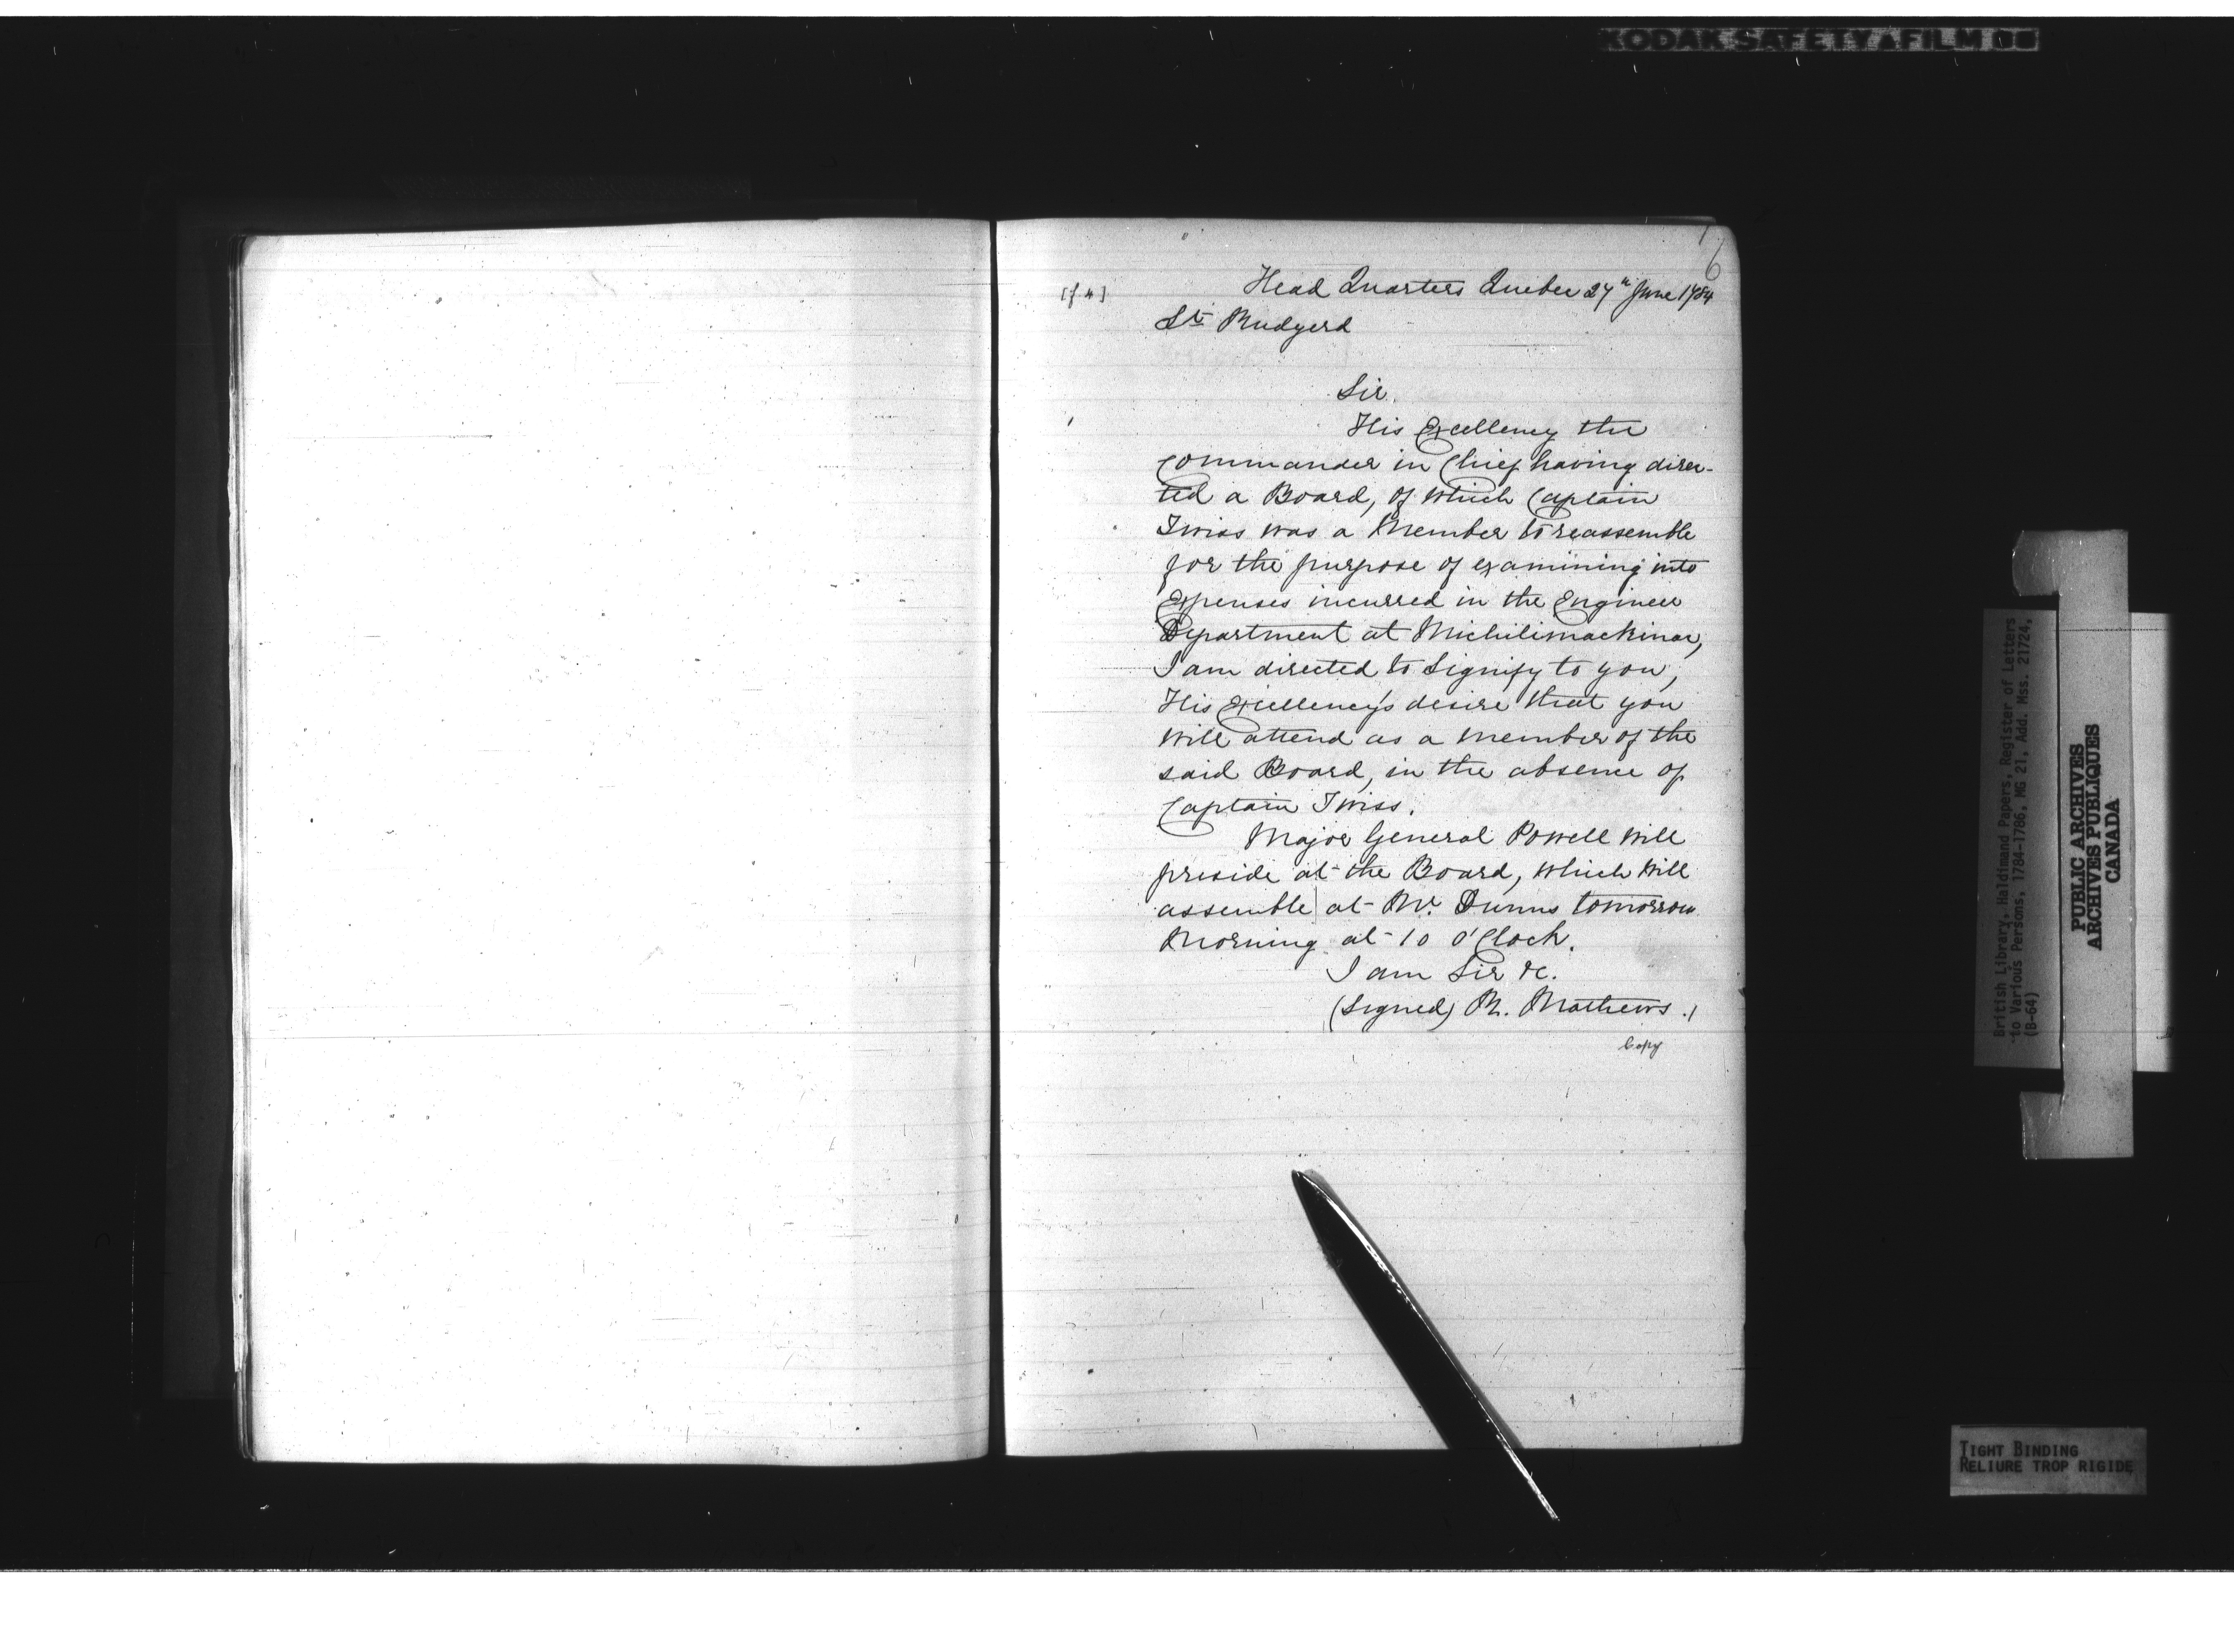 KODAK SAFETY FILM
6
[f 4]
Head Quarters Quebec 27th June 1784
Lt Rudyerd
Sir,
His Excellency the
Commander in Chief having direc-
ted a Board, of which Captain
Twiss was a Member to reassemble
for the purpose of examining into
Expenses incurred in the Engineer
Department at Michilimackinac,
I am directed to Signify to you,
His Excellency's desire that you
will attend as a member of the
said Board, in the absence of
Captain Twiss.
Major General Powell will
preside at the Board, which will
assemble at Mr. Dunns tomorrow
Morning at 10 O'Clock.
I am Sir &c.
(Signed) R. Mathews.
Copy
British Library, Haldimand Papers, Register of Letters
to Various Persons, 1784-1786, MG 21, Add. Mss. 21724,
(B-64)
PUBLIC ARCHIVES
ARCHIVES PUBLIQUES
CANADA
TIGHT BINDING
RELIURE TROP RIGIDE